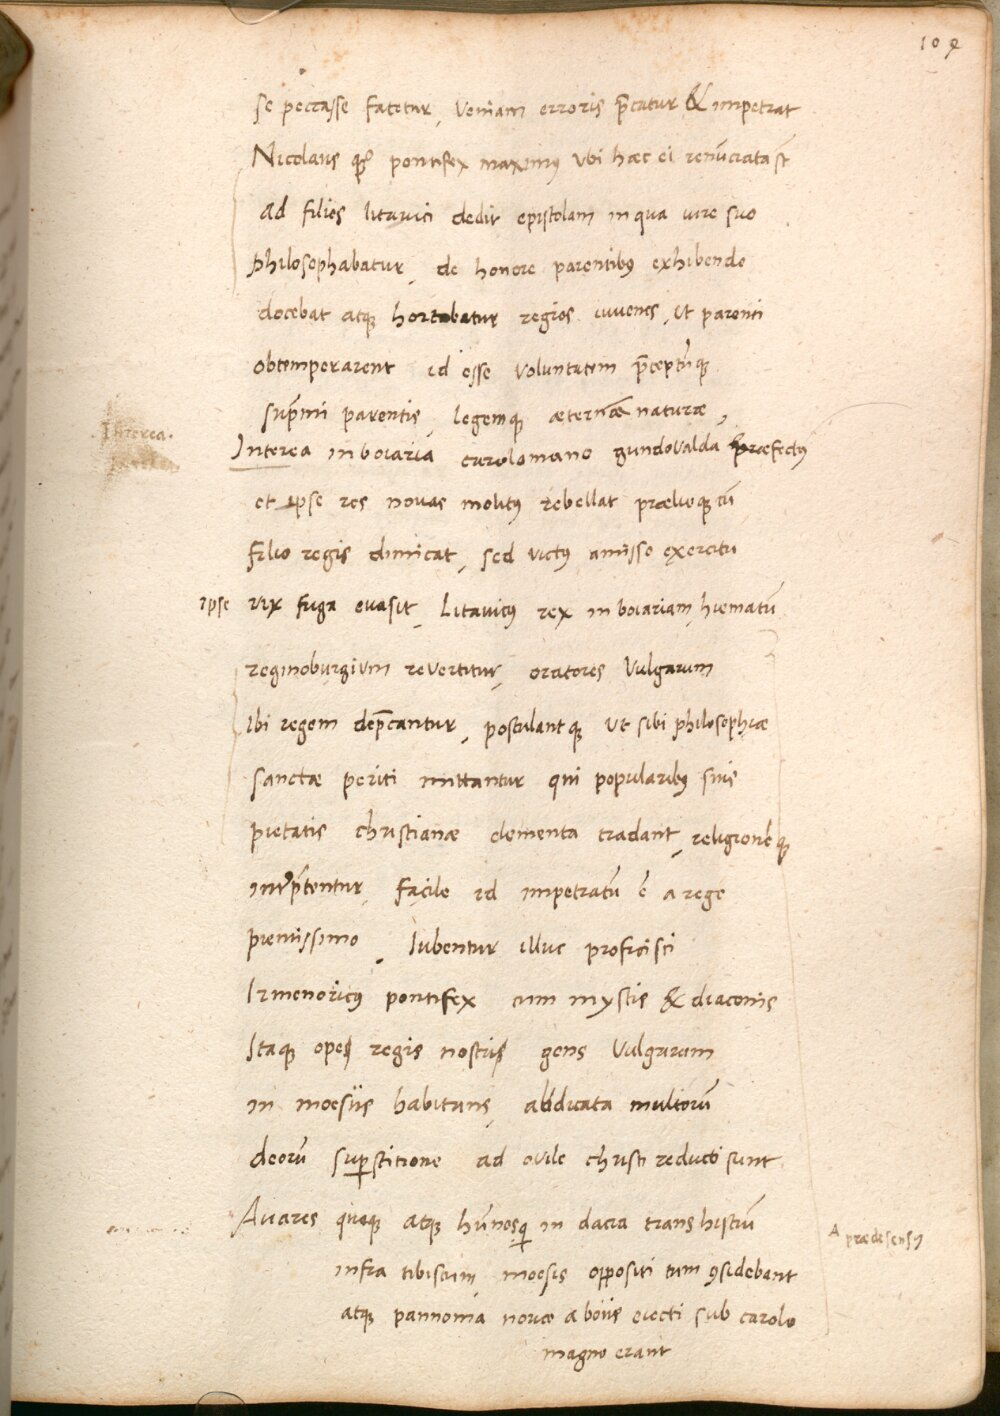 109
se peccasse fatetur, veniam erroris p̄catur & impetrat
Nicolaus qͦ pontifex maximꝰ ubi hæc ei renūciata st̄
ad filios litavici dedit epistolam in qua iure suo
philosophabatur, de honore parentibꝰ exhibendo
docebat atqꝫ hortabatur regios iuvenes, ut parenti
obtemperarent id esse voluntatem p̄ceptūqꝫ
sup̄mi parentis, legemqꝫ æternæ naturæ,
Interea
Interea in boiaria carolomano gundovalda præfectꝰ
et ipse res novas molitꝰ rebellat prælioqꝫ cū
filio regis dimicat, sed victꝰ amisso exercitu
ipse vix fuga evasit, Litavicꝰ rex in boiariam hiematū
reginoburgium revertitur, oratores Vulgarum
Ibi regem dep̄cantur, postulantqꝫ ut sibi philosophiæ
sanctæ periti mittantur qui popularibꝰ suis
pietatis christianæ elementa tradant, religionēqꝫ
interp̄tentur, facile id impetratū ē a rege
pientissimo, Iubentur illuc proficisci
Irmenoricꝰ pontifex cum mystis & diaconis
Itaqꝫ ope regis nostri gens Vulgarum
in moesiis habitans, abdicata multorū
deorū suꝑstitione ad ovile christi reducti sunt
Avares quoqꝫ atqꝫ hūnos qui in dacia trans histrū
A prædesensꝰ
infra tibiscum moesis oppositi tum ꝯsidebant
atqꝫ pannonia norico a boiis eiecti sub carolo
magno erant